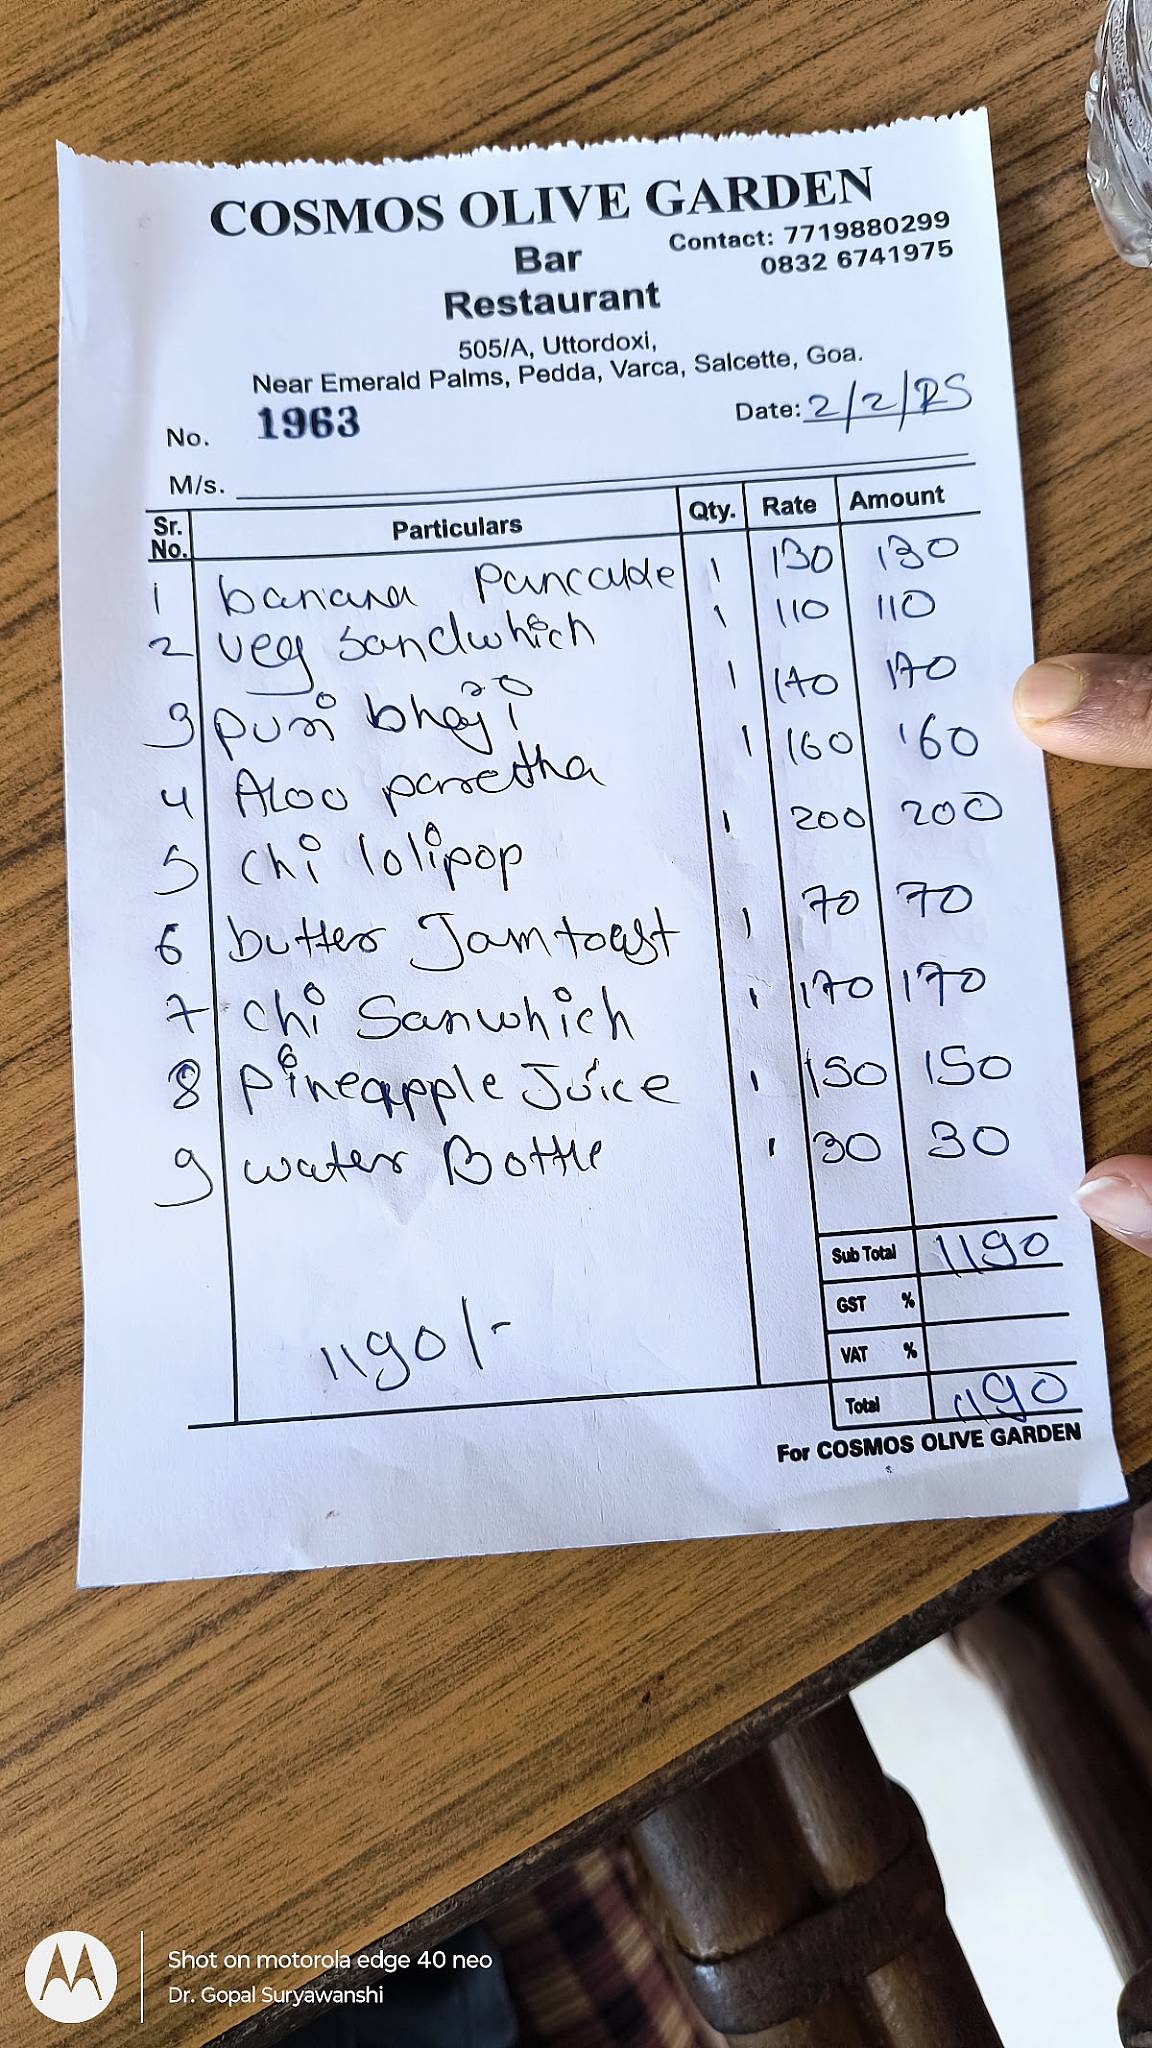 COSMOS OLIVE GARDEN
Bar
Restaurant
Contact: 7719880299
0832 6741975
505/A, Uttordoxi,
Near Emerald Palms, Pedda, Varca, Salcette, Goa.
No. 1963 Date: 2/2/25
M/s.
Sr. No. Particulars Qty. Rate Amount
1 banana Pancake 1 130 130
2 veg Sandwhich 1 110 110
3 puri bhaji 1 170 170
4 Aloo paretha 1 160 160
5 chi lolipop 1 200 200
6 butter Jam toast 1 70 70
7 chi Sanwhich 1 170 170
8 Pineapple Juice 1 150 150
9 water Bottle 1 30 30
Sub Total 1190
GST %
VAT %
1190/-
Total 1190
For COSMOS OLIVE GARDEN
Shot on motorola edge 40 neo
Dr. Gopal Suryawanshi